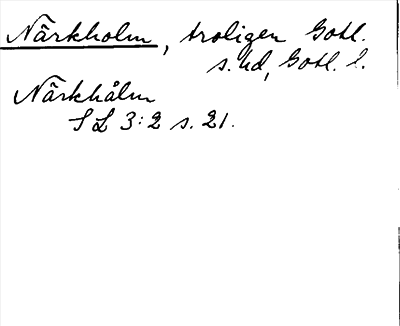 Närkholm, troligen Gotl.
s. ud, Gotl. l.
Närkhålm
SL 3:2 s. 21.